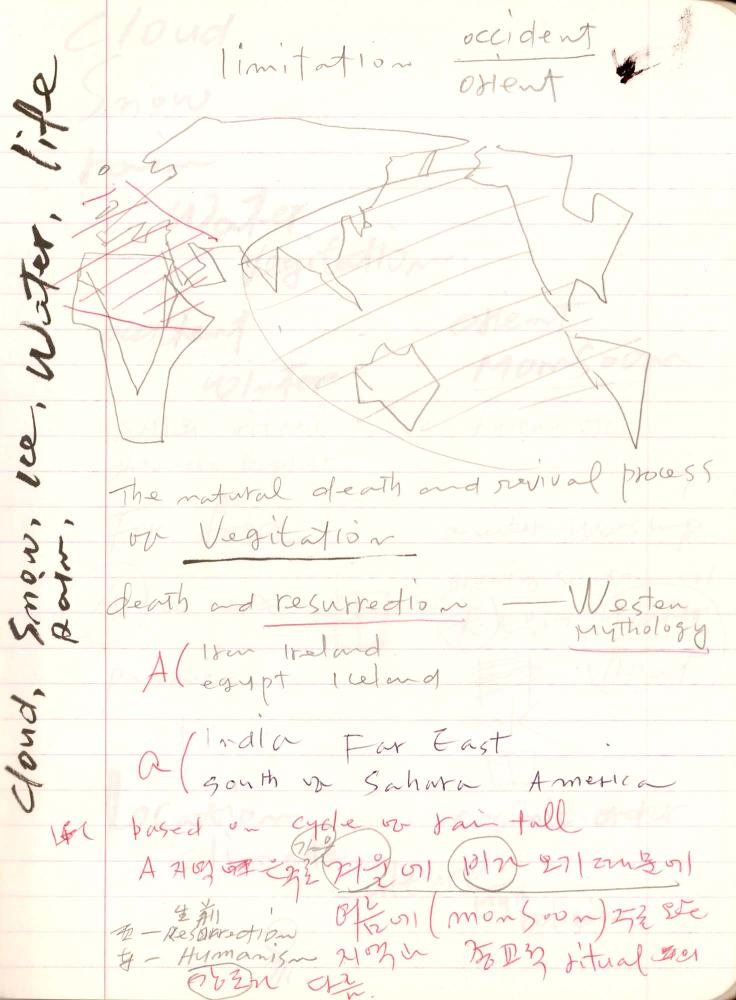 limitation occident
orient
Cloud, Snow, Ice, Water, life
Rain,
The natural death and revival process
of Vegitation
death and resurrection — Western
Mythology
A( Iran Ireland
egypt Iceland
a( India Far East
south of Sahara America
based on cycle of rain fall
가을
A 지역은 주로 겨울에 비가 오기 때문에
여름에 (monsoon) 주로 오는
生前
五 — Resurrection
Humanism 지역과 종교적 ritual의
강도가 다름.